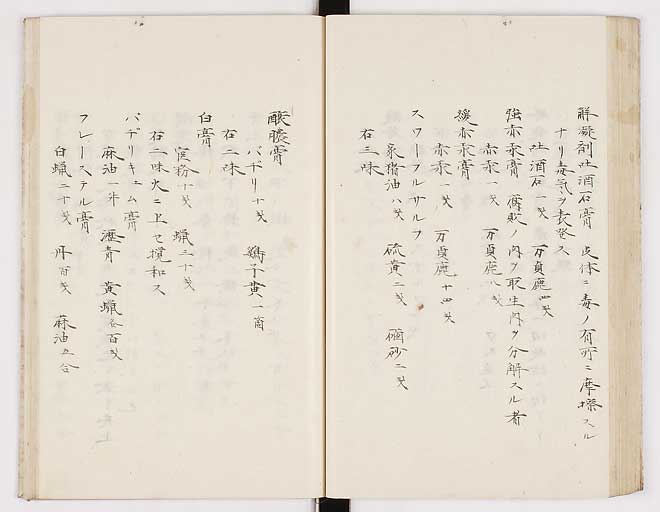 解凝剤吐酒石膏 皮体ニ毒ノ有所ニ摩擦スル
ナリ毒気ヲ表発ス
吐酒石一戔 万貞鹿四戔
強赤汞膏 腐敗ノ肉ヲ取生肉ヲ分解スル者
赤汞一戔 万貞鹿八戔
緩赤汞膏
赤汞一戔 万貞鹿十四戔
スワーフルサルフ
豕猪油八戔 硫黄二戔 磠砂二戔
右三味
酸膿膏
バヂリ十戔 鶏子黄一箇
右二味
白膏
官粉十戔 蝋三十戔
右二味火ニ上セ攪和ス
バヂリキュム膏
麻油一升 瀝青 黄蝋各百戔
フレーステル膏
白蝋二十戔 丹百戔 麻油五合